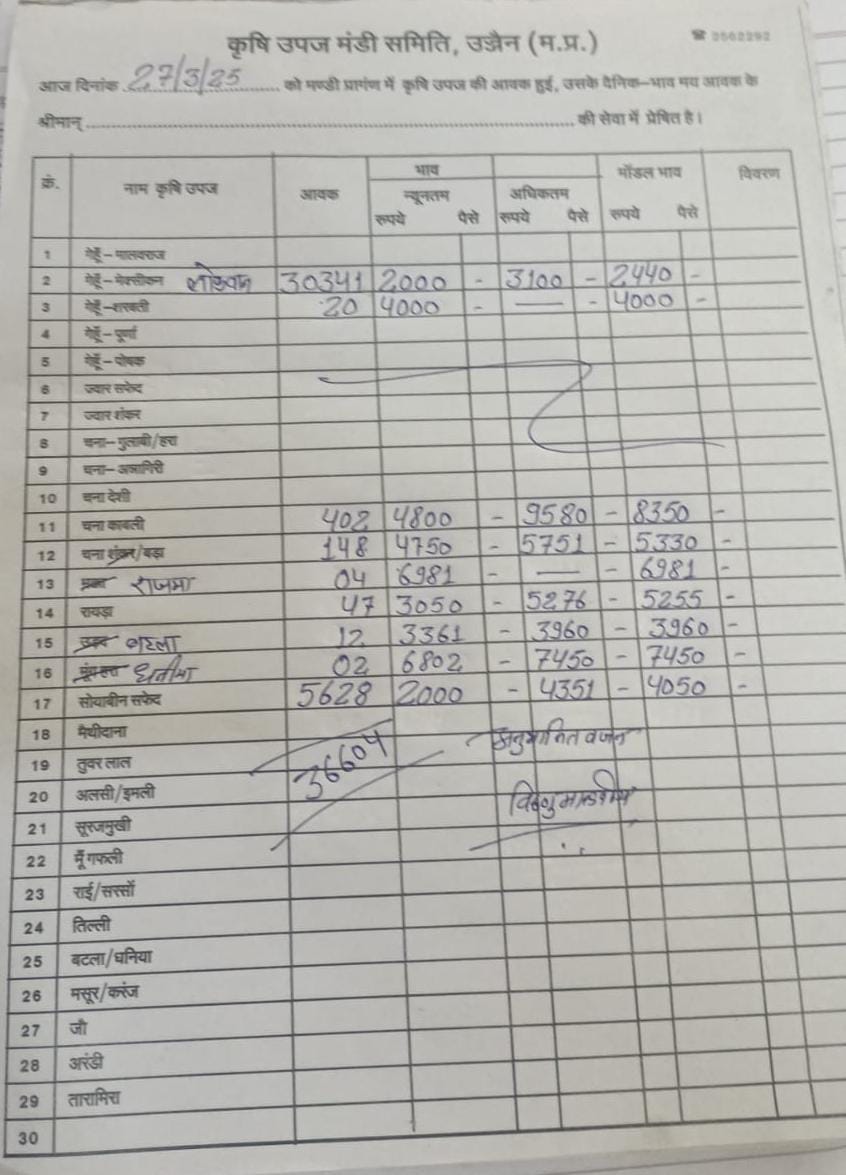 कृषि उपज मंडी समिति, उज्जैन (म.प्र.) ☎ 2562292
आज दिनांक 27/3/25 को मण्डी प्रागंण में कृषि उपज की आवक हुई, उसके दैनिक-भाव मय आवक के
श्रीमान् की सेवा में प्रेषित है।
भाव
क्रं. नाम कृषि उपज आवक न्यूनतम अधिकतम मॉडल भाव विवरण
रुपये पैसे रुपये पैसे रुपये पैसे
1 गेहूँ-मालवराज
2 गेहूँ-मेक्सीकन लोकवन 30341 2000 - 3100 - 2440 -
3 गेहूँ-शरबती 20 4000 - — - 4000 -
4 गेहूँ-पूर्णा
5 गेहूँ-पोषक
6 ज्वार सफेद
7 ज्वार शंकर
8 चना-गुलाबी/हरा
9 चना-अन्नागिरी
10 चना देशी
11 चना काबली 402 4800 - 9580 - 8350 -
12 चना शंकर/बड़ा 148 4750 - 5751 - 5330 -
13 मक्का राजमा 04 6981 - — - 6981 -
14 रायड़ा 47 3050 - 5276 - 5255 -
15 उड़द बटला 12 3361 - 3960 - 3960 -
16 धनीया 02 6802 - 7450 - 7450 -
17 सोयाबीन सफेद 5628 2000 - 4351 - 4050 -
18 मैथीदाना अनुमानित वजन
19 तुवर लाल 36604
20 अलसी/इमली
21 सूरजमुखी
22 मूँगफली
23 राई/सरसों
24 तिल्ली
25 बटला/धनिया
26 मसूर/करंज
27 जौ
28 अरंडी
29 तारामिरा
30